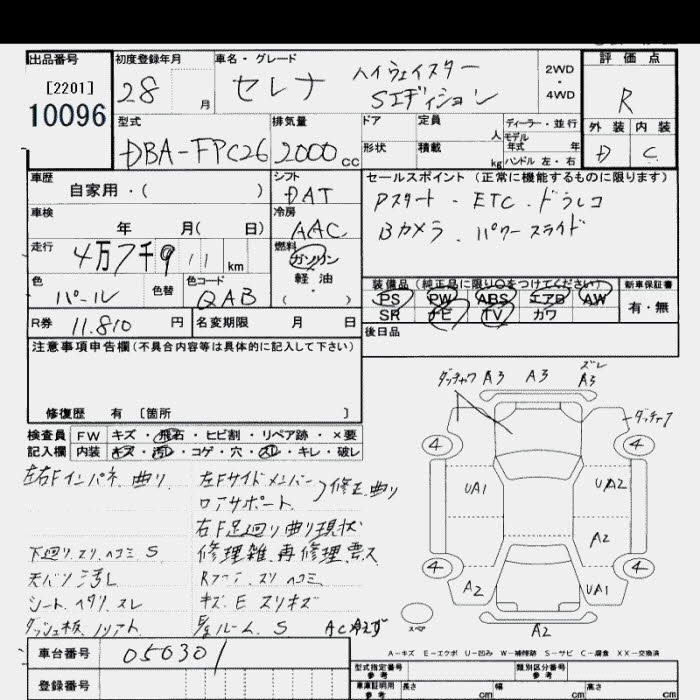 出品番号
[2201]
10096
初度登録年月
28 月
車名・グレード
セレナ ハイウェイスター
Sエディション
2WD
・
4WD
評価点
R
外装 内装
D C
型式
DBA-FPC26
排気量
2000 cc
ドア 定員 人
形状 積載 kg
ディーラー・並行
モデル
年式 年
ハンドル 左・右
車歴
自家用・( )
シフト
DAT
車検
年 月( 日)
冷房
AAC
走行
4万7千9 11 km
燃料
ガソリン
軽油
・
( )
色
パール
色替
色コード
QAB
R券 11.810 円
名変期限 月 日
セールスポイント (正常に機能するものに限ります)
Pスタート・ETC・ドラレコ
Bカメラ・パワースライド
装備品(純正品に限り○をつけてください)
PS PW ABS エアB AW
SR ナビ TV カワ
新車保証書
有・無
後日品
注意事項申告欄(不具合内容等は具体的に記入して下さい)
修復歴 有 〔箇所 〕
検査員
記入欄
FW キズ・飛石・ヒビ割・リペア跡・×要
内装 キズ・汚レ・コゲ・穴・スレ・キレ・破レ
左右Fインパネ曲り
左Fサイドメンバー
ロアサポート 修正、曲り
右F足廻り曲り現状
下廻り、スリ、ヘコミ S
修理雑、再修理要ス
天バリ汚レ
シート、ヘタリ、スレ
キズ、E スリキズ
ルーム、S
ダッチャク A3 A3 ズレ
A3
ダッチャク
4 4
UA1 UA2
A2
4 4
A2 UA1
A2
スペア
A-キズ E-エクボ U-凹み W-補修跡 S-サビ C-腐食 XX-交換済
車台番号 050301
登録番号
型式指定番号
参考
類別区分番号
参考
車庫証明用
参考
長さ cm 幅 cm 高さ cm